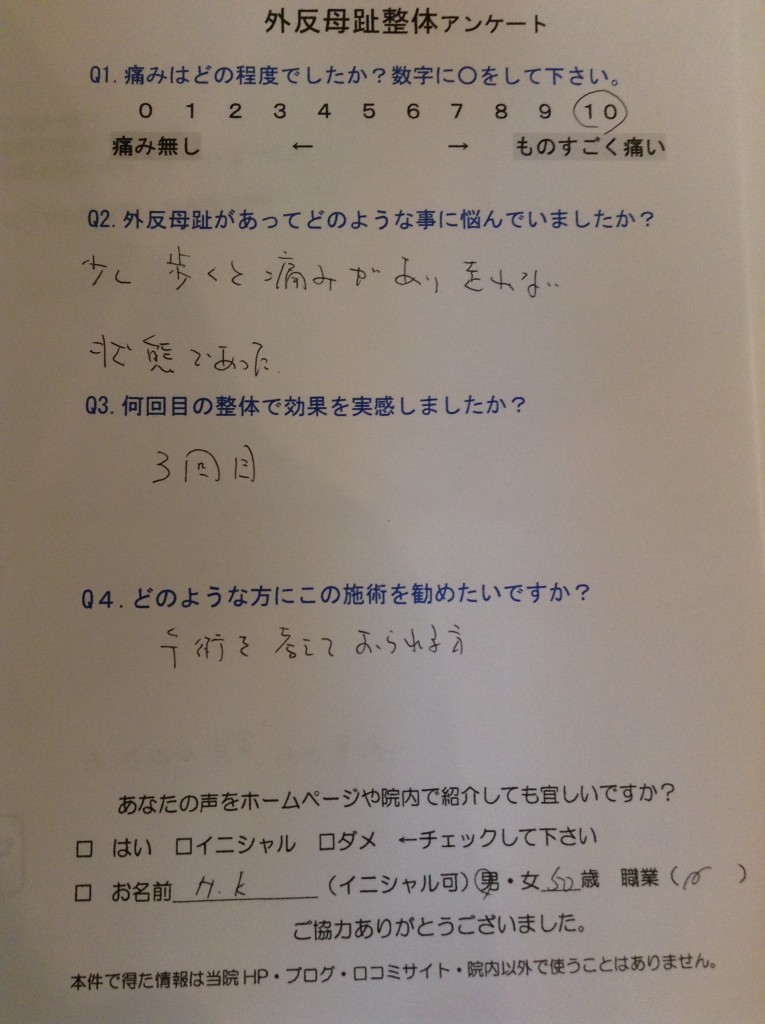 外反母趾整体アンケート
Q1.痛みはどの程度でしたか？数字に〇をして下さい。
0 1 2 3 4 5 6 7 8 9 10
痛み無し ← → ものすごく痛い
Q2.外反母趾があってどのような事に悩んでいましたか？
少し歩くと痛みがあり走れない
状態であった.
Q3.何回目の整体で効果を実感しましたか？
3回目
Q4.どのような方にこの施術を勧めたいですか？
手術を考えておられる方
あなたの声をホームページや院内で紹介しても宜しいですか？
□ はい □イニシャル □ダメ ←チェックして下さい
□ お名前 H.K （イニシャル可）男・女 50歳 職業（ ）
ご協力ありがとうございました。
本件で得た情報は当院HP・ブログ・口コミサイト・院内以外で使うことはありません。